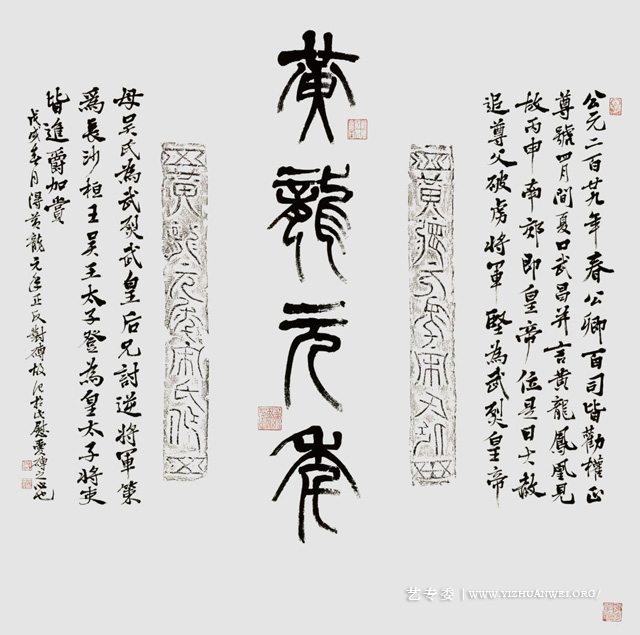 公元二百廿九年春公卿百司皆勸權正
尊號四月間夏口武昌并言黃龍鳳凰見
故丙申南郊即皇帝位是日大赦
追尊父破虏將軍堅為武烈皇帝
黃龍元年
黃龍元年
黃龍元年宋氏作
母吳氏為武烈武皇后兄討逆將軍策
為長沙桓王吳王太子登為皇太子將吏
皆進爵加賞
戊戌春月得黃龍元年正反對磚故記於此慰愛磚之心也
艺专委 | WWW.YIZHUANWEI.ORG/